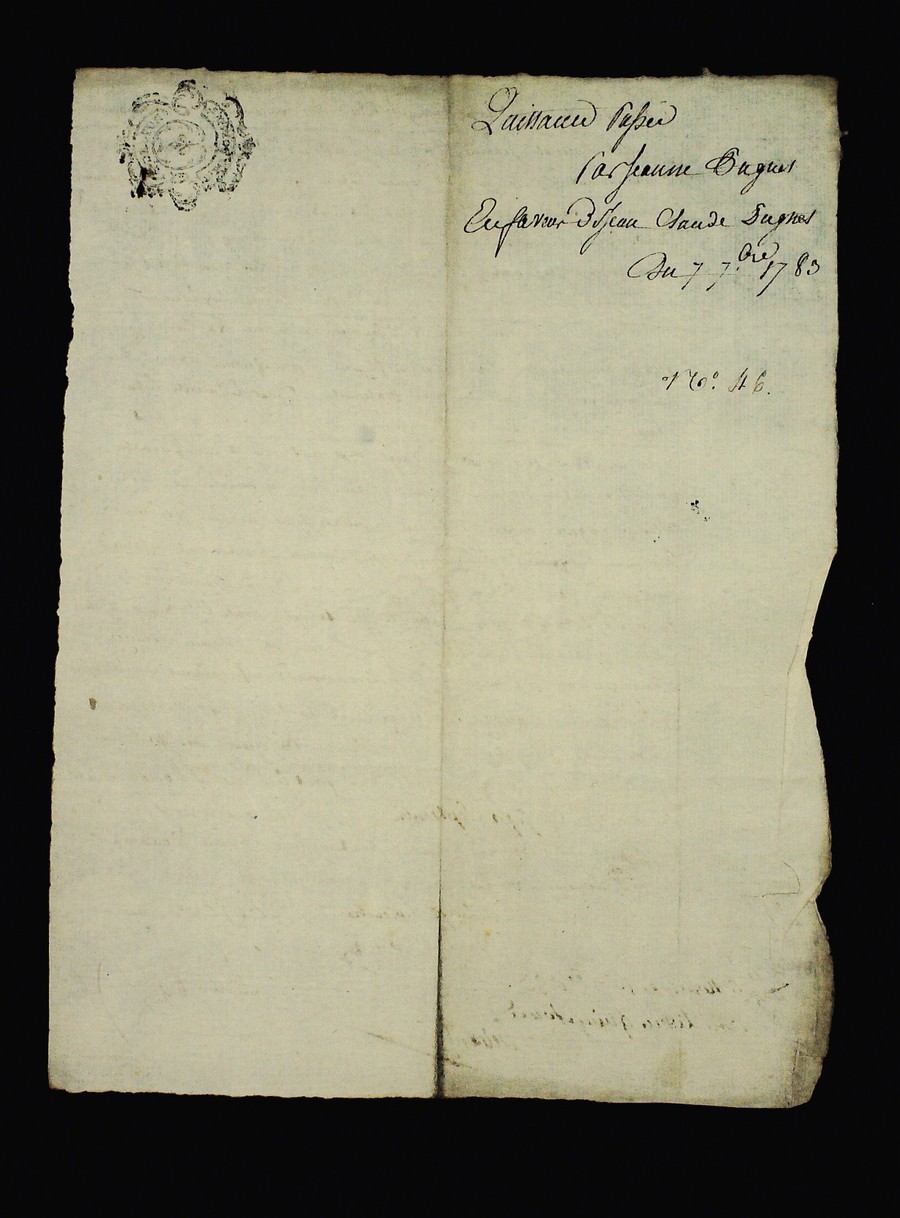 Quittance Passée
Par Jeanne Dugnes
En faveur d Jean Claude Dugnes
Du 7 7.bre 1783
No. 46.